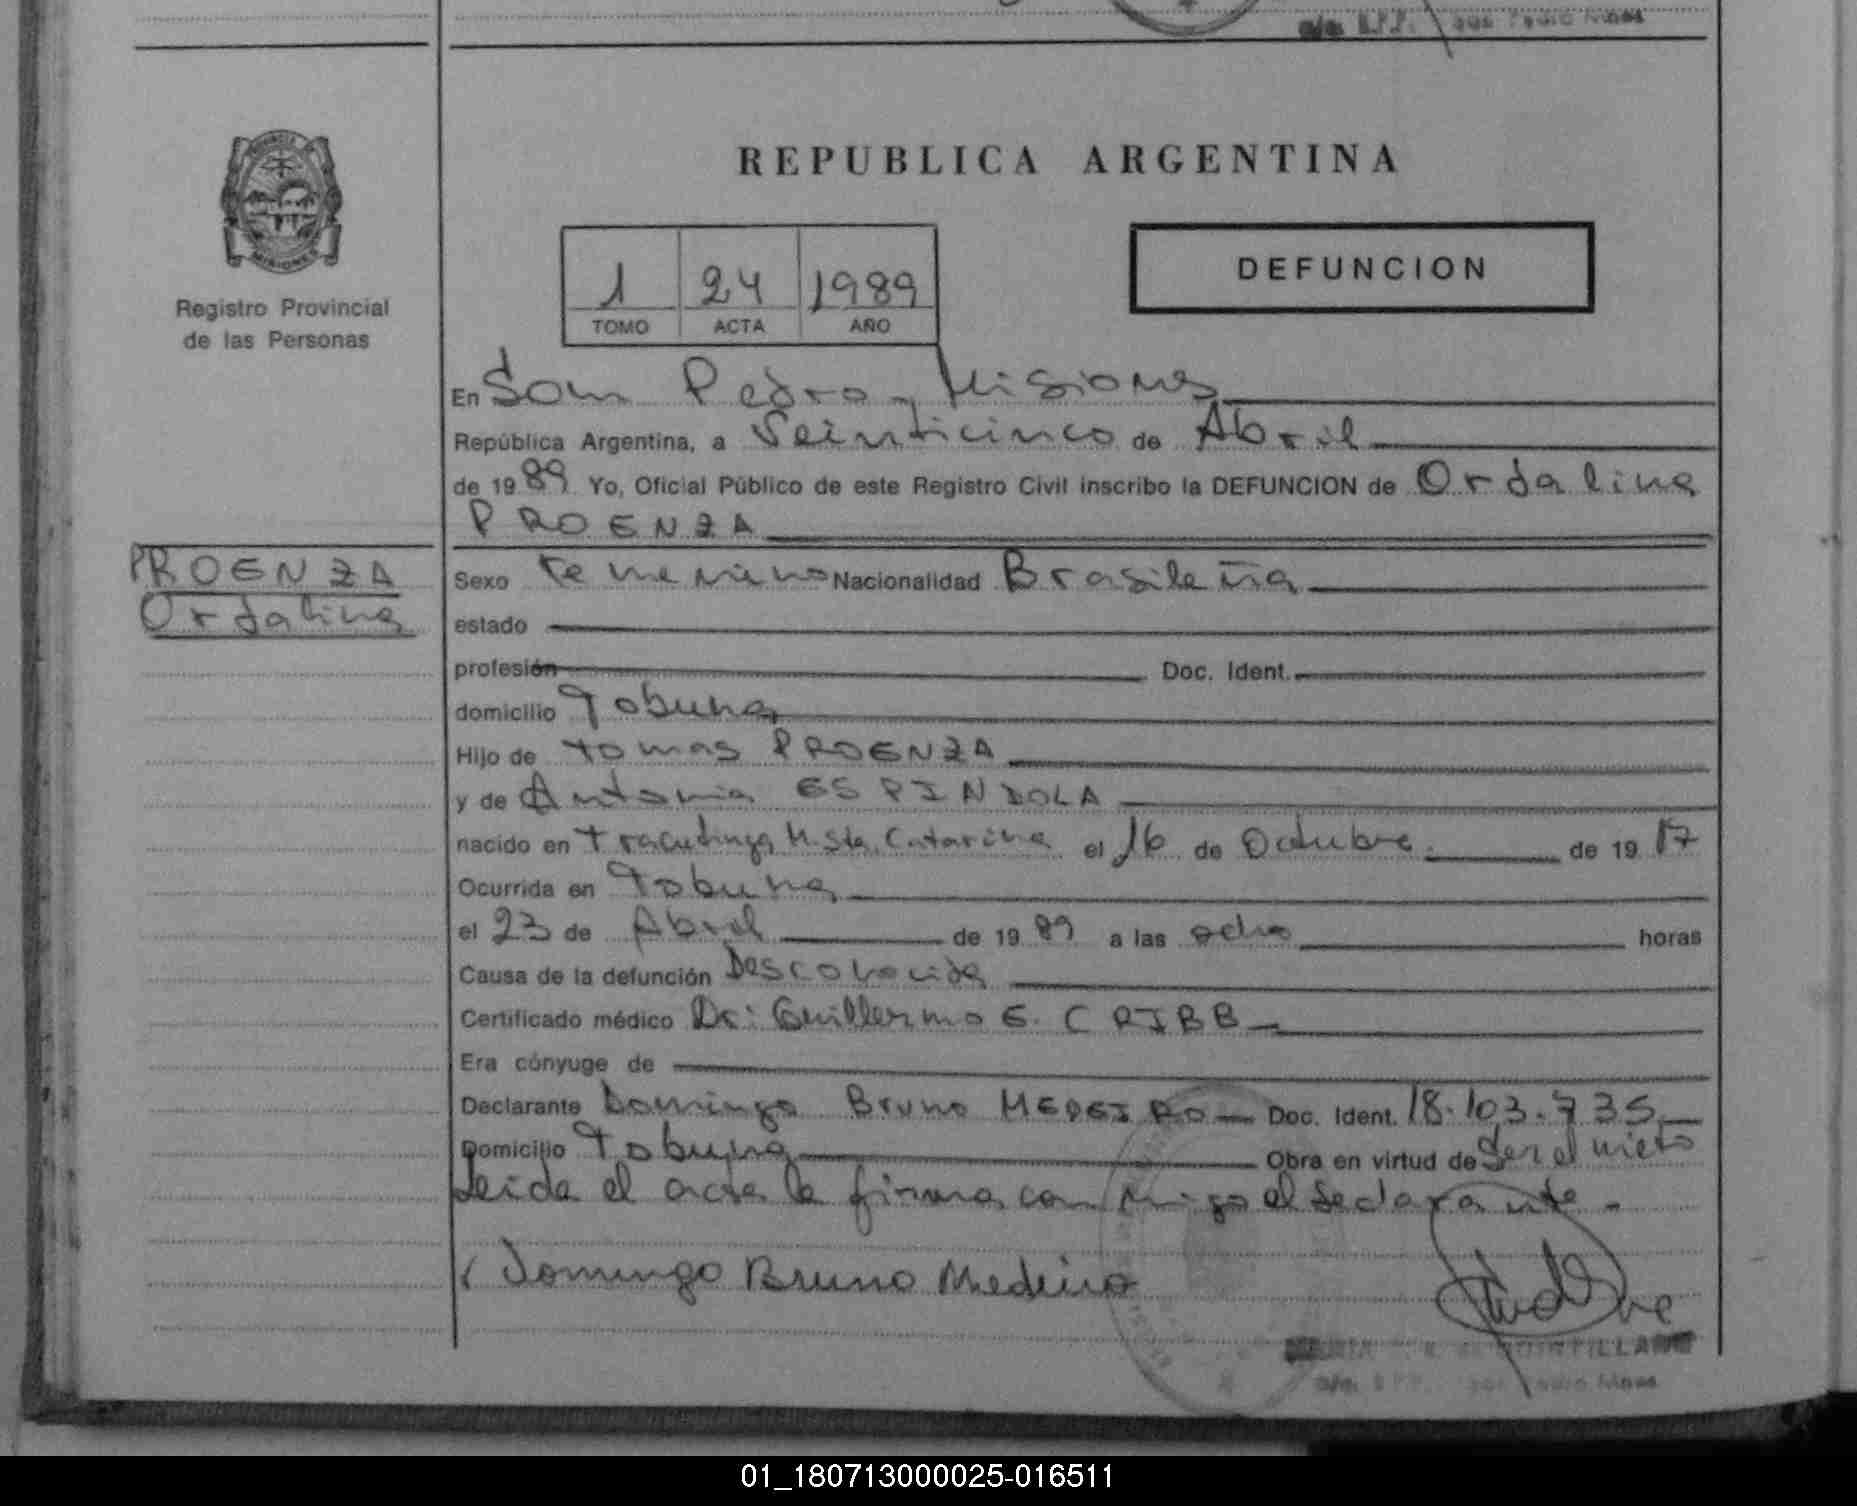 S.P.P. San Pedro Mnes
REPUBLICA ARGENTINA
PROVINCIA
MISIONES
Registro Provincial
de las Personas
1 24 1989
TOMO ACTA AÑO
DEFUNCION
En San Pedro, Misiones
República Argentina, a Veinticinco de Abril
de 1989 Yo, Oficial Público de este Registro Civil inscribo la DEFUNCION de Ordalina
PROENZA
PROENZA
Ordalina
Sexo Femenino Nacionalidad Brasileña
estado
profesión Doc. Ident.
domicilio Tobuna
Hijo de Tomas PROENZA
y de Antonia ESPINDOLA
nacido en Sta. Catarina el 16 de Octubre de 1917
Ocurrida en Tobuna
el 23 de Abril de 1989 a las ocho horas
Causa de la defunción Desconocida
Certificado médico Dr: Guillermo E. CRIBB
Era cónyuge de
Declarante Domingo Bruno MEDEIRO Doc. Ident. 18.103.735
Domicilio Tobuna Obra en virtud de Ser el nieto
Leida el acta la firma con migo el declarante.
Domingo Bruno Medeiro
QUINTILLAN
San Pedro Mnes
01_180713000025-016511